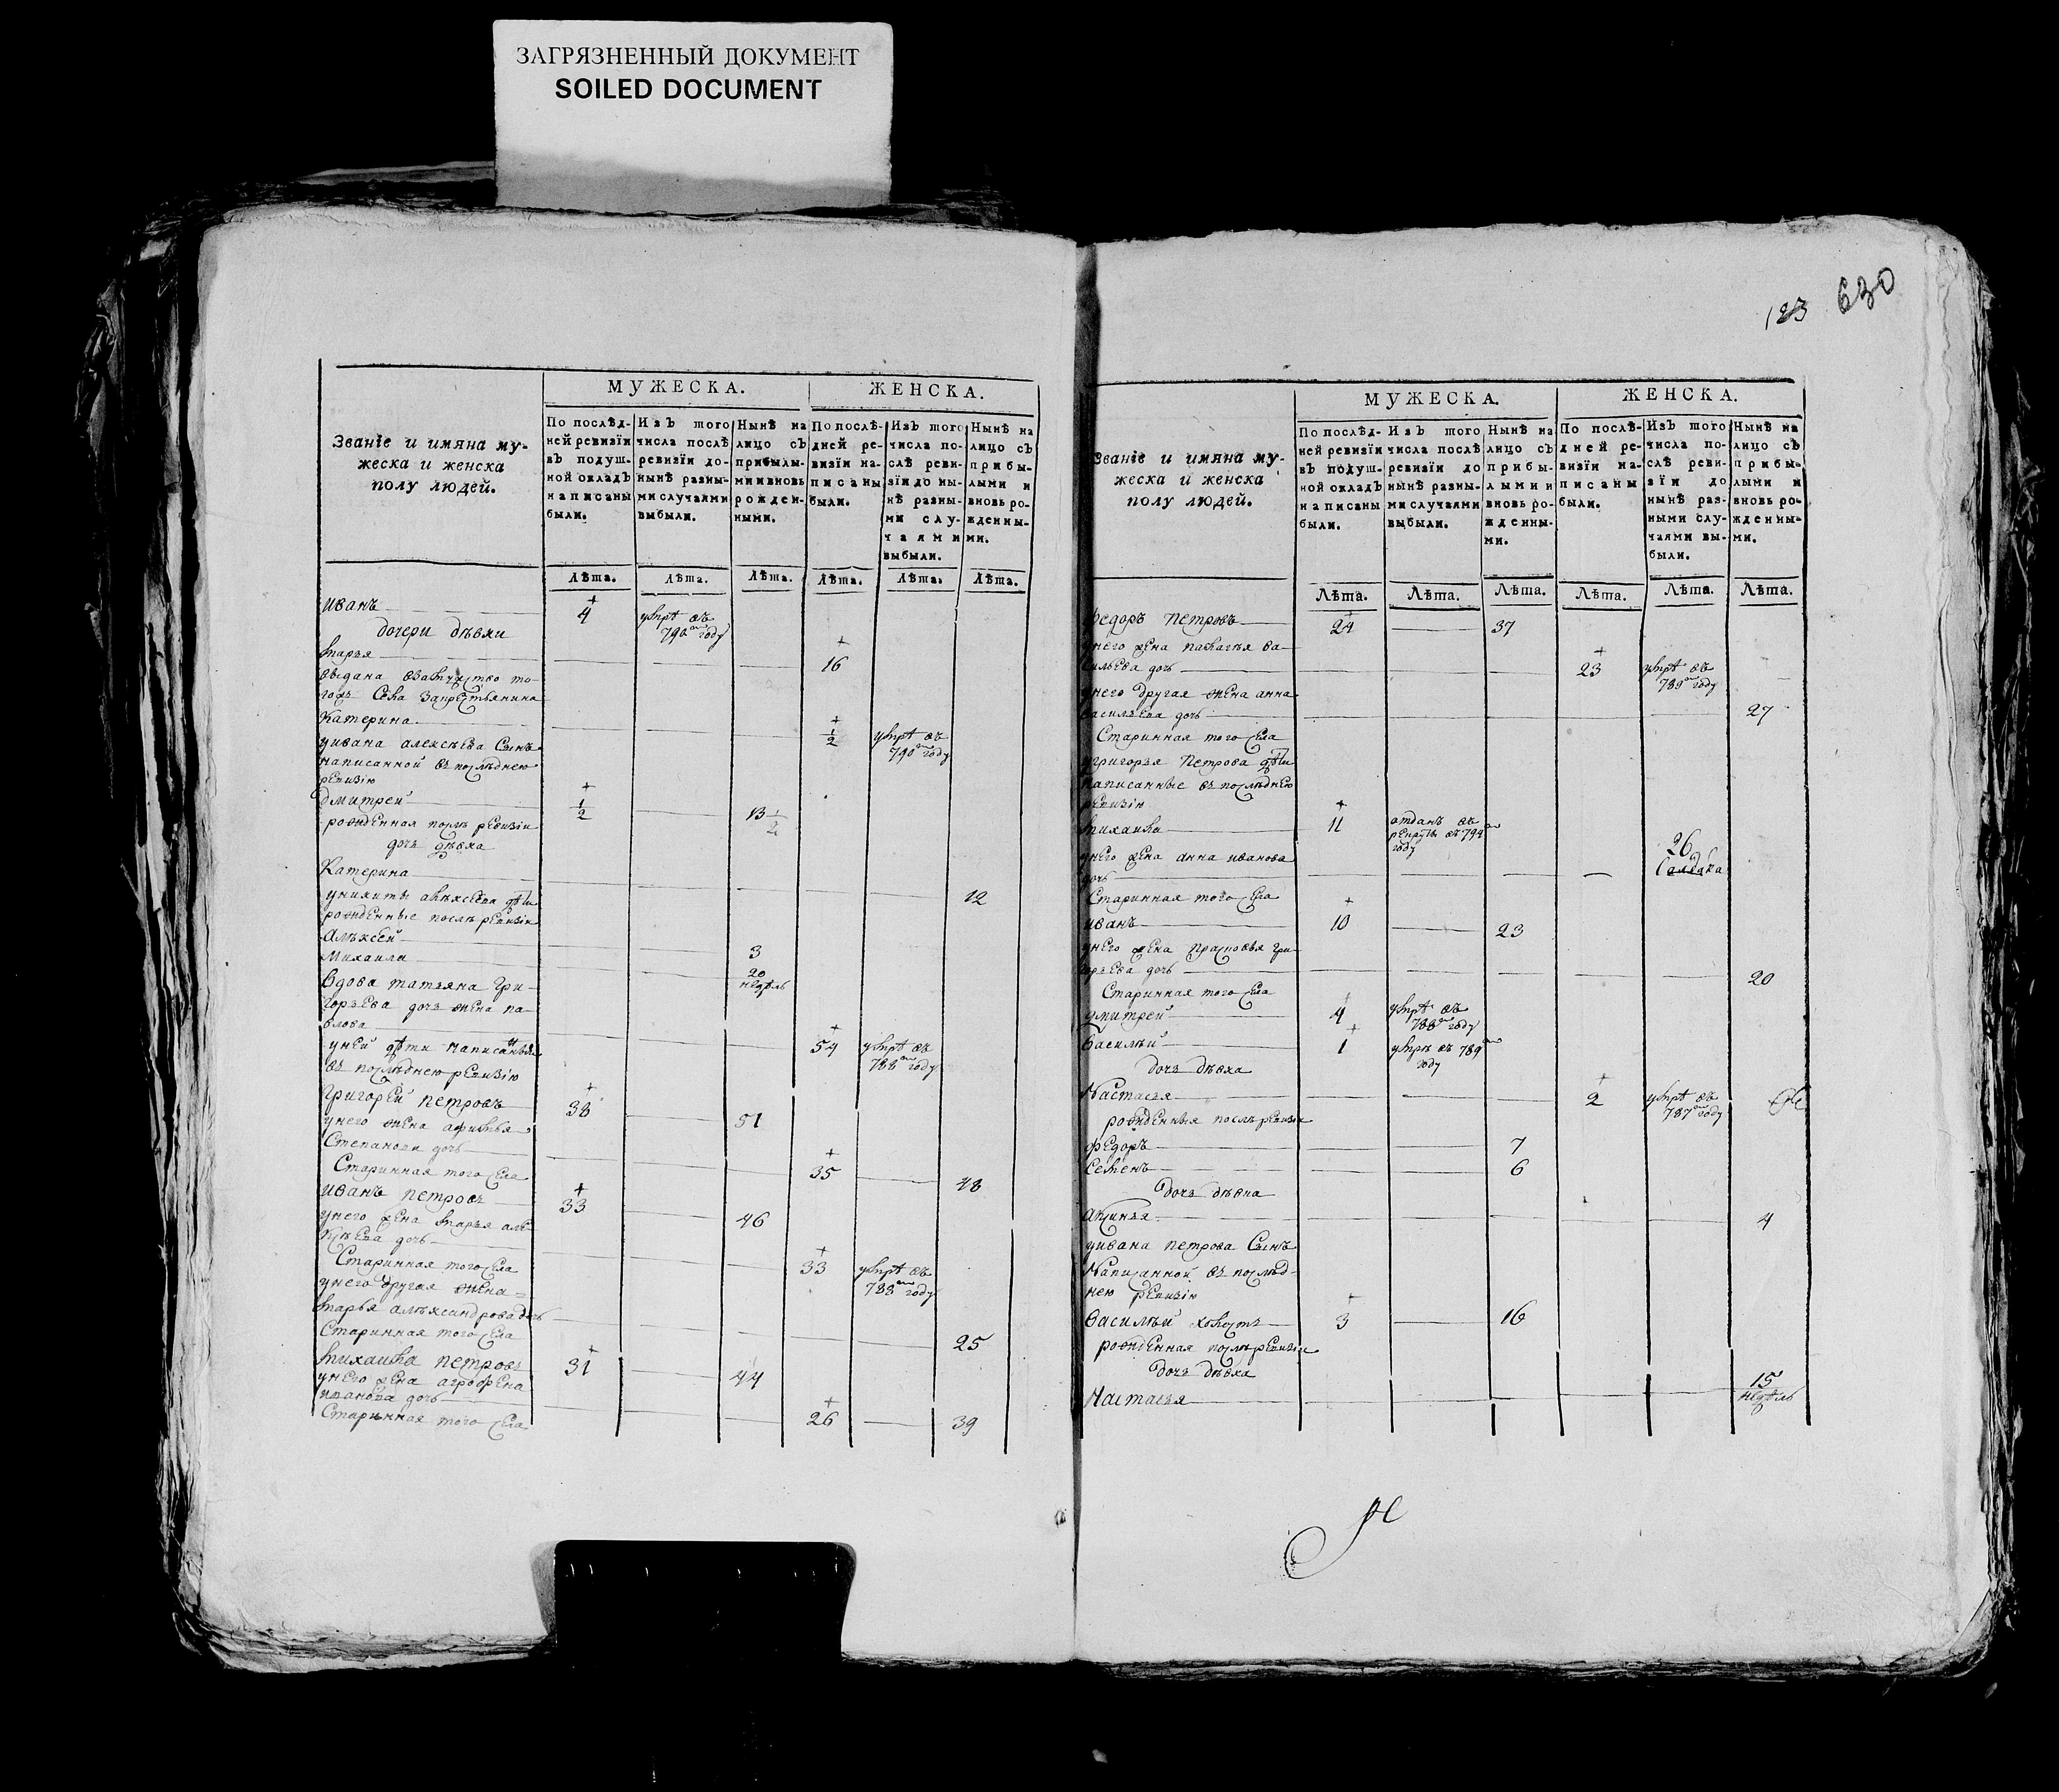 ЗАГРЯЗНЕННЫЙ ДОКУМЕНТ
SOILED DOCUMENT
123 630
Званіе и имяна му-
жеска и женска
полу людей.
МУЖЕСКА.
ЖЕНСКА.
По послѣд-
ней ревизїи
въ подуш-
ной окладъ
написаны
были.
Изъ того
числа послѣ
ревизїи до-
нынѣ разны-
ми случаями
выбыли.
Нынѣ на
лицо съ
прибылы-
ми и вновь
рожден-
ными.
По послѣ-
дней ре-
визїи на-
писаны
были.
Изъ того
числа по-
слѣ реви-
зїи до ны-
нѣ разны-
ми слу-
чаями
выбыли.
Нынѣ на
лицо съ
прибы-
лыми и
вновь ро-
жденны-
ми.
Лѣта. Лѣта. Лѣта. Лѣта. Лѣта. Лѣта.
иванъ 4 умре въ
790 году
дочери дѣвки
марья 16
выдана взамужство то-
гожъ села закрестьянина
Катерина 1/2 умре въ
790 году
уивана алексѣева сынъ
написанной въ последнею
ревизїю
дмитрей 1/2 13 1/2
рожденная послѣ ревизїи
дочь дѣвка
Катерина 12
уникиты алѣксеева дѣти
рожденные послѣ ревизїи
Алѣксей 3
михаила 20
недѣль
Вдова татьяна гри-
горьева дочь жена па-
влова 54 умре въ
788 году
уней дѣти написанные
въ последнею ревизїю
Григорей петровъ 38 51
унего жена афимья
Степанова дочь 35 48
Старинная того села
иванъ петровъ 33 46
унего жена марья але-
ксѣева дочь 33 умре въ
788 году
Старинная того села
унего другая жена
марья алѣксандрова дочь 25
Старинная того села
михаила петровъ 31 44
унего жена аграфена
иванова дочь 26 39
Старинная того села
Званіе и имяна му-
жеска и женска
полу людей.
МУЖЕСКА.
ЖЕНСКА.
По послѣд-
ней ревизїи
въ подуш-
ной окладъ
написаны
были.
Изъ того
числа послѣ
ревизїи до
нынѣ разны-
ми случаями
выбыли.
Нынѣ на
лицо съ
прибы-
лыми и
вновь ро-
жденны-
ми.
По послѣ-
дней ре-
визїи на-
писаны
были.
Изъ того
числа по-
слѣ реви-
зїи до
нынѣ раз-
ными слу-
чаями вы-
были.
Нынѣ на
лицо съ
прибы-
лыми и
вновь ро-
жденны-
ми.
Лѣта. Лѣта. Лѣта. Лѣта. Лѣта. Лѣта.
федоръ петровъ 24 37
унего жена палагья ва-
сильева дочь 23 умре въ
789 году
унего другая жена анна
васильева дочь 27
Старинная того села
угригорья петрова дѣти
написанные въ последнею
ревизїю
михаила 11 отданъ въ
рекруты въ 794
году
унего жена анна иванова
дочь 26
Салдатка
Старинная того села
иванъ 10 23
унего жена прасковья гри-
горьева дочь 20
Старинная того села
дмитрей 4 умре въ
788 году
Василѣй 1 умре въ 789
году
дочь дѣвка
Настасья 2 умре въ
787 году
рожденныя послѣ ревизїи
федоръ 7
Семенъ 6
дочь дѣвка
аксинья 4
уивана петрова сынъ
написанной въ послѣд-
нею ревизїю
Василѣй холостъ 3 16
рожденная послѣ ревизїи
дочь дѣвка
Настасья 15
недѣль